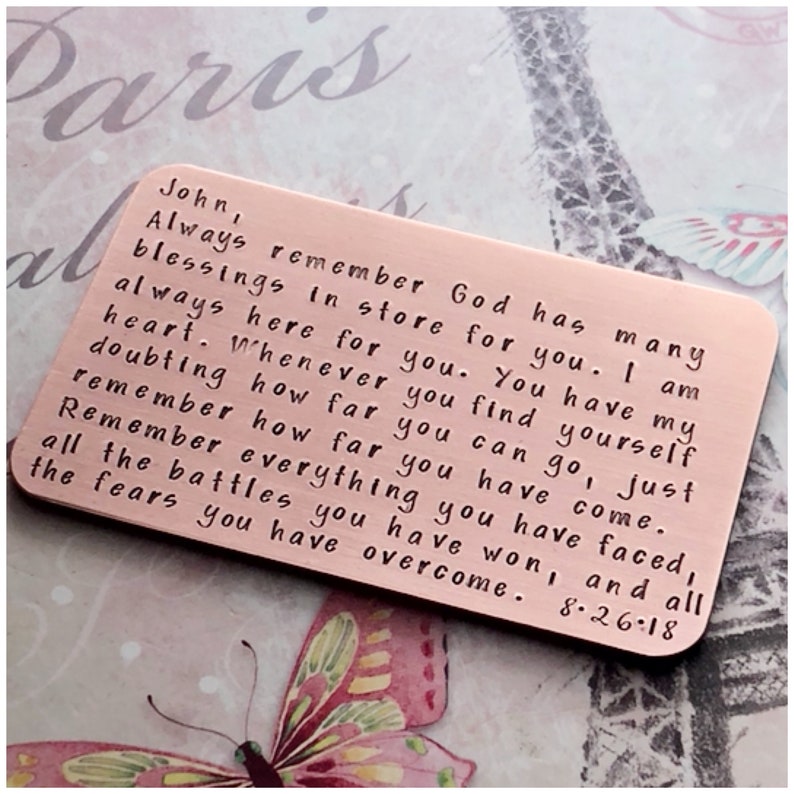 Paris
GW
John,
Always remember God has many
blessings in store for you. I am
always here for you. You have my
heart. Whenever you find yourself
doubting how far you can go, just
remember how far you have come.
Remember everything you have faced,
all the battles you have won, and all
the fears you have overcome. 8•26•18